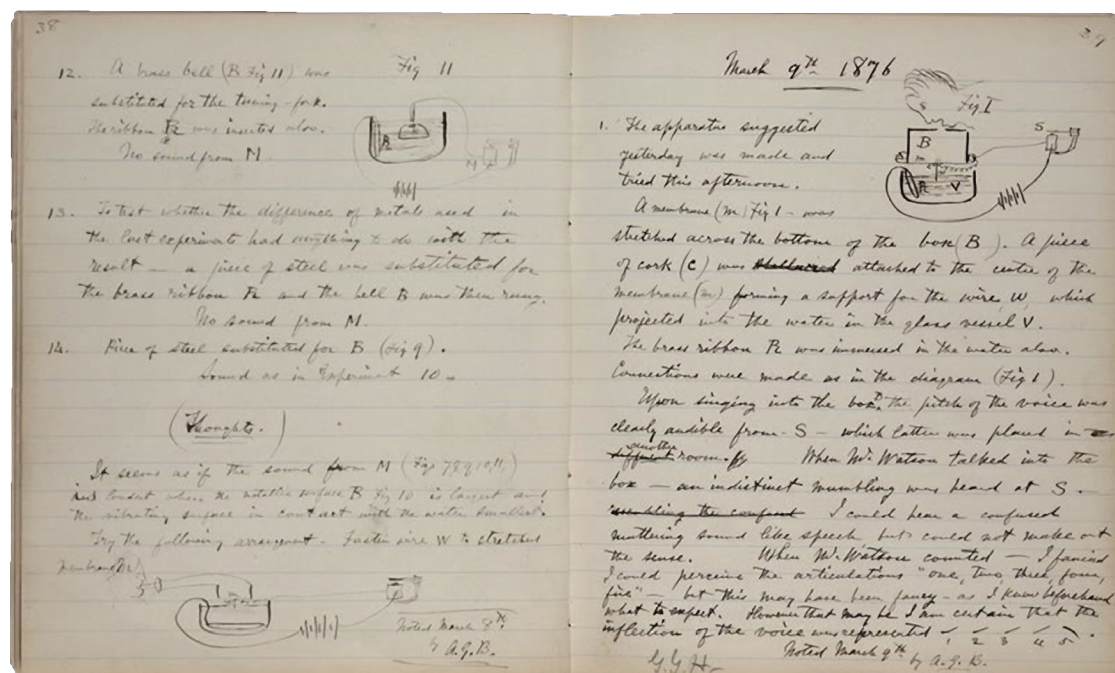 38
12. A brass bell (B Fig 11) was
Fig 11
substituted for the tuning-fork.
The ribbon R was inserted also.
No sound from M.
R
M
13. To test whether the difference of metals used in
the last experiments had anything to do with the
result — a piece of steel was substituted for
the brass ribbon R and the bell B was then rung.
No sound from M.
14. Piece of steel substituted for B (Fig 9).
Sound as in Experiment 10 —
(Thoughts.)
It seems as if the sound from M (Figs 7 8 9 10, 11,)
loudest when the metallic surface B Fig 10 is largest and
the vibrating surface in contact with the water smallest.
Try the following arrangement — Fasten wire W to stretched
membrane
Noted March 8th
by A.G.B.
39
March 9th 1876
Fig I
1. The apparatus suggested
yesterday was made and
tried this afternoon.
B
S
m
R
V
A membrane (m) Fig 1 — was
stretched across the bottom of the box (B). A piece
of cork (c) was attached to the centre of the
membrane (m) forming a support for the wire W, which
projected into the water in the glass vessel V.
The brass ribbon R was immersed in the water also.
Connections were made as in the diagram (Fig 1).
Upon singing into the box, the pitch of the voice was
clearly audible from — S — which latter was placed in
another
different room. When Mr. Watson talked into the
box — an indistinct mumbling was heard at S. —
I could hear a confused
muttering sound like speech but could not make out
the sense. When Mr. Watson counted — I fancied
I could perceive the articulations "one, two, three, four,
five" — but this may have been fancy — as I knew beforehand
what to expect. However that may be I am certain that the
inflection of the voice was represented 1 2 3 4 5.
Noted March 9th
by A.G.B.
G.G.H.